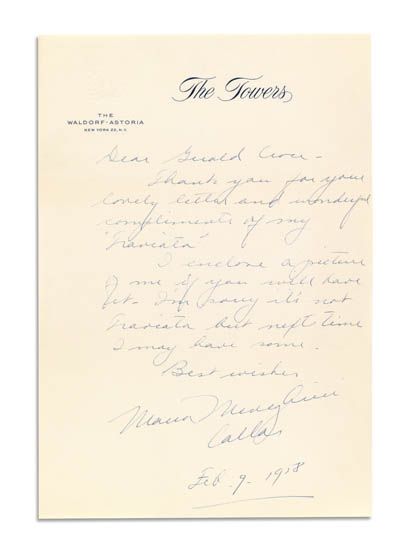 The Towers
THE
WALDORF-ASTORIA
NEW YORK 22, N.Y.
Dear Gerald -
Thank you for your
lovely letter and wonderful
compliments of my
"Traviata"
I enclose a picture
of me if you will have
it. I'm sorry it's not
Traviata but next time
I may have some.
Best wishes
Maria Meneghini
Callas
Feb. 9. 1958